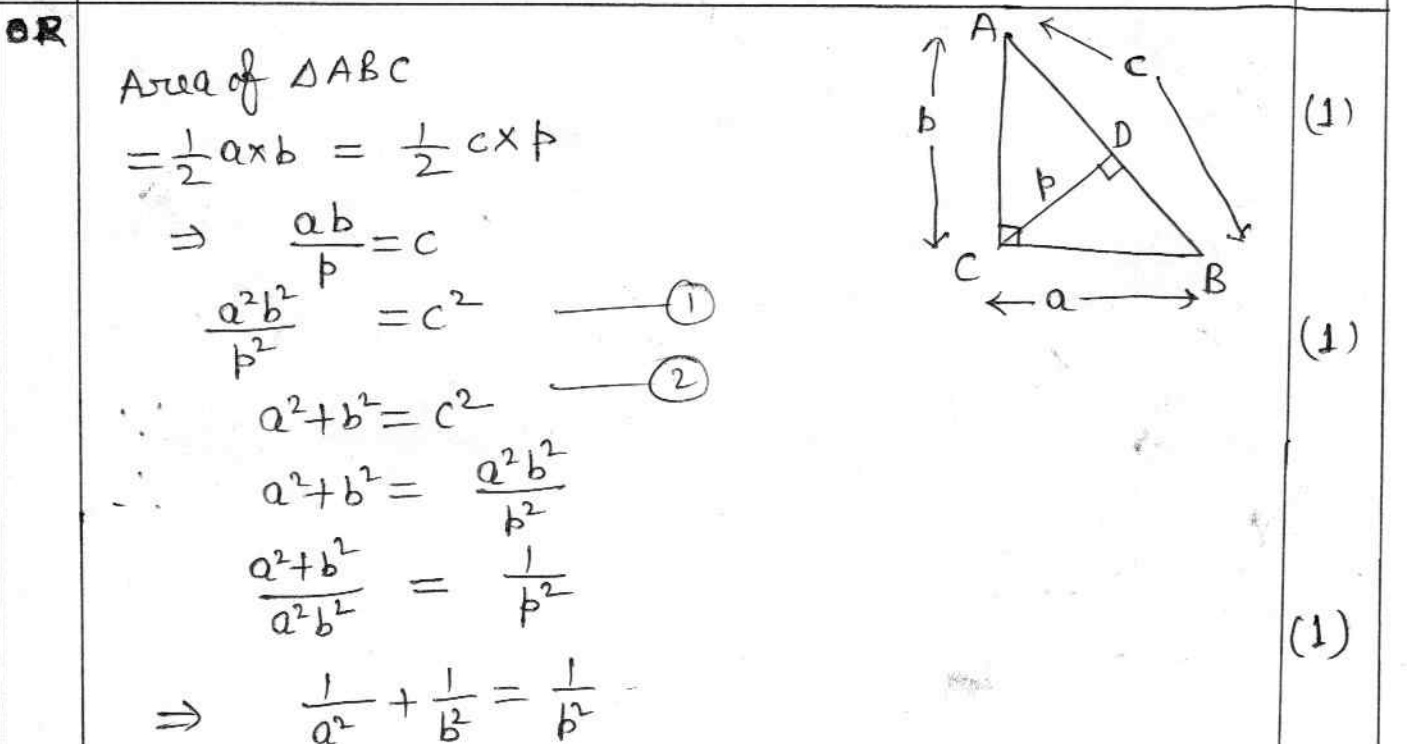 OR
Area of △ABC
= 1/2 a×b = 1/2 c×p
⇒ ab/p = c
a²b²/p² = c² —— ①
∵ a²+b² = c² —— ②
∴ a²+b² = a²b²/p²
(a²+b²)/(a²b²) = 1/p²
⇒ 1/a² + 1/b² = 1/p²
A
c
b
D
p
C
B
a
(1)
(1)
(1)